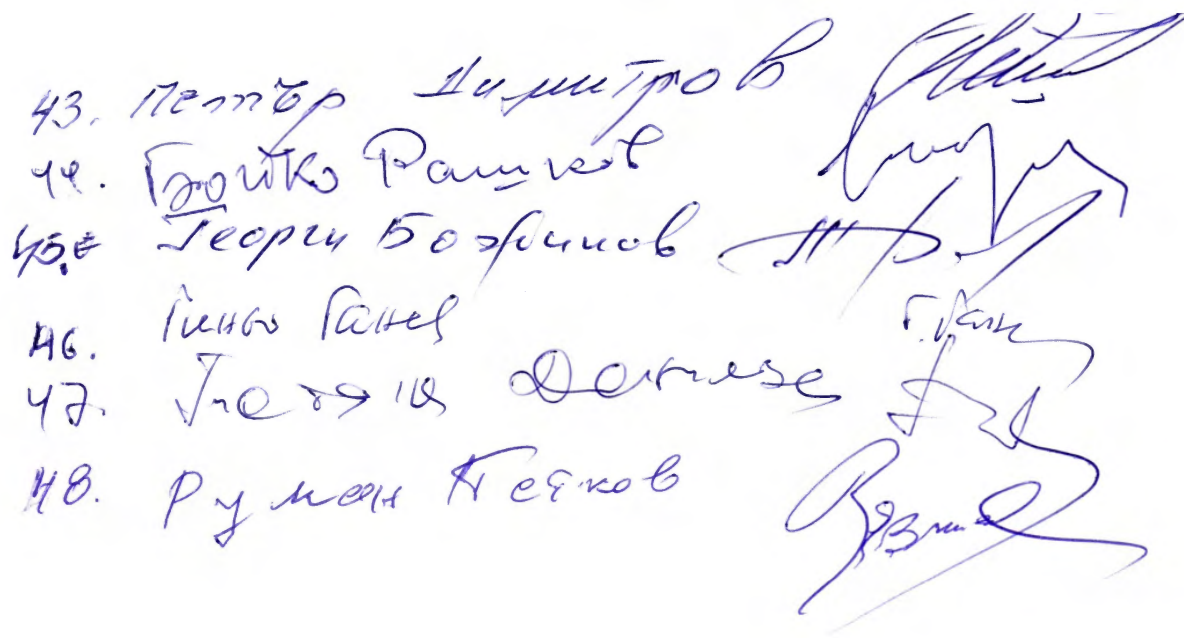 43. Петър Димитров
44. Бойко Рашков
45. Георги Божинов
46. Гиньо Ганев Г. Ган
47. Дончева
48. Румен Петков